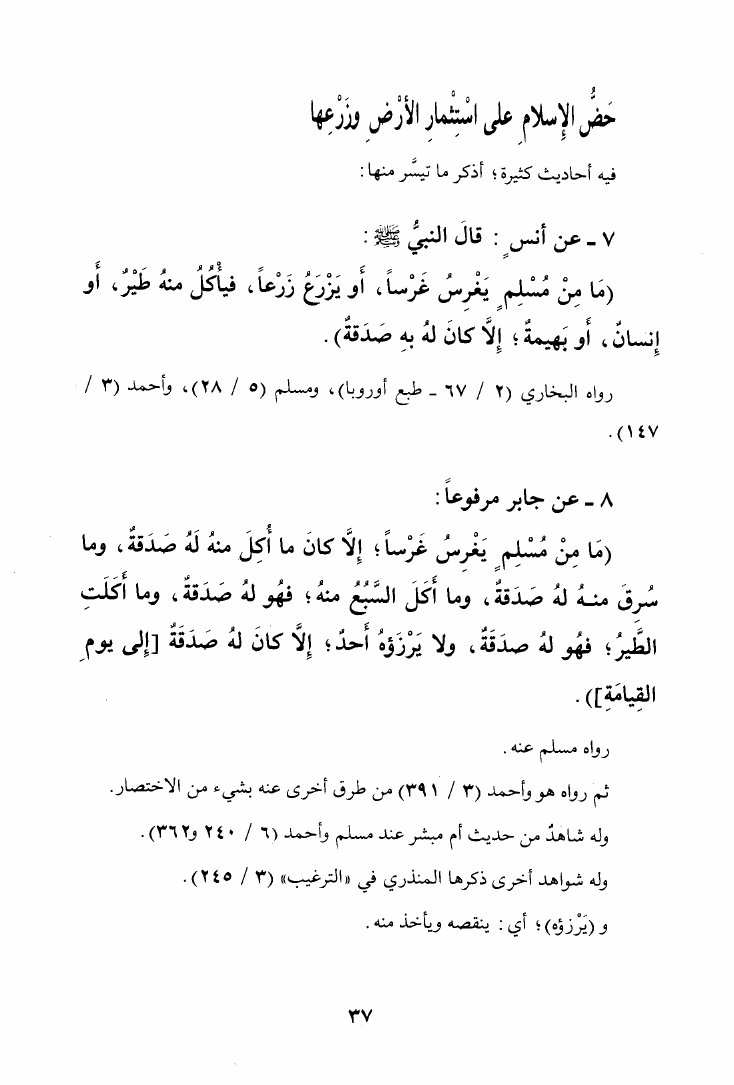 حَضُّ الإِسلامِ على اسْتِثْمارِ الأرْضِ وزَرْعِها
فيه أحاديث كثيرة؛ أذكر ما تيسَّر منها:
٧ ـ عن أنسٍ: قالَ النبيُّ ﷺ:
(مَا مِنْ مُسْلِمٍ يَغْرِسُ غَرْساً، أو يَزْرَعُ زَرْعاً، فيأْكُلُ منهُ طَيْرٌ، أو
إِنسانٌ، أو بَهيمةٌ؛ إِلَّا كانَ لهُ بهِ صَدَقةٌ).
رواه البخاري (٢ / ٦٧ ـ طبع أوروبا)، ومسلم (٥ / ٢٨)، وأحمد (٣ /
١٤٧).
٨ ـ عن جابر مرفوعاً:
(مَا مِنْ مُسْلِمٍ يَغْرِسُ غَرْساً؛ إِلَّا كانَ ما أُكِلَ منهُ لَهُ صَدَقةٌ، وما
سُرِقَ منهُ لهُ صَدَقةٌ، وما أَكَلَ السَّبُعُ منهُ؛ فهُو لهُ صَدَقةٌ، وما أَكَلَتِ
الطَّيرُ؛ فهُو لهُ صدَقَةٌ، ولا يَرْزَؤهُ أَحدٌ؛ إِلَّا كانَ لهُ صَدَقَةٌ [إِلى يومِ
القِيامَةِ]).
رواه مسلم عنه.
ثم رواه هو وأحمد (٣ / ٣٩١) من طرق أخرى عنه بشيء من الاختصار.
وله شاهدٌ من حديث أم مبشر عند مسلم وأحمد (٦ / ٢٤٠ و٣٦٢).
وله شواهد أخرى ذكرها المنذري في «الترغيب» (٣ / ٢٤٥).
و (يَرْزؤه)؛ أي: ينقصه ويأخذ منه.
٣٧